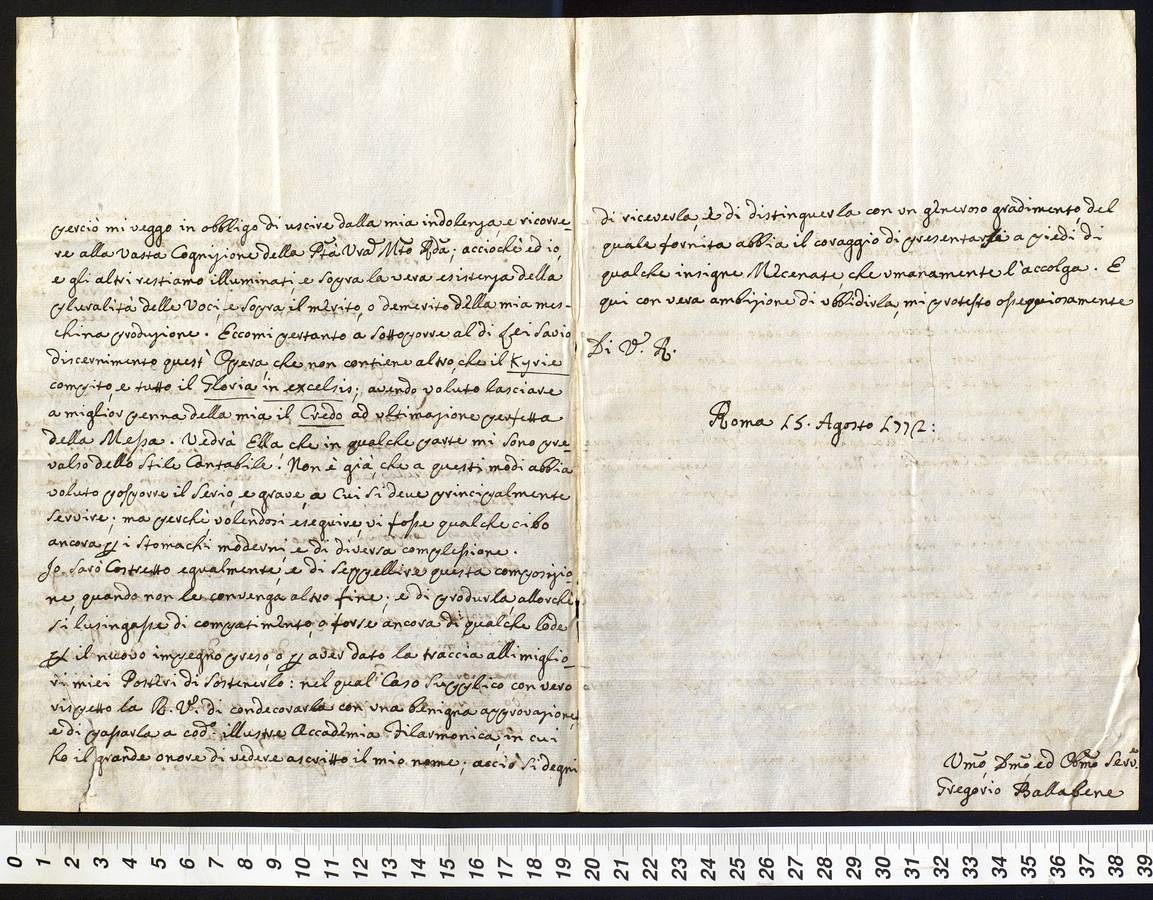 perciò mi veggo in obbligo di uscire dalla mia indolenza, e ricorre-
re alla vasta Cognizione della Pta. Vra. Mto. Rda.; acciochè ed io,
e gli altri restiamo illuminati, e sopra la vera esistenza della
pluralità delle Voci, e sopra il merito, o demerito della mia mes-
china produzione. Eccomi pertanto a sottoporre al di Lei savio
discernimento quest' Opera, che non contiene altro, che il Kyrie
compito, e tutto il Gloria in excelsis; avendo voluto lasciare
a miglior penna della mia il Credo ad ultimazione perfetta
della Messa. Vedrà Ella che in qualche parte mi sono pre-
valso dello Stile Cantabile: Non è già, che a questi modi abbia
voluto posporre il serio, e grave, a cui si deve principalmente
servire; ma perchè volendosi eseguire, vi fosse qualche cibo
ancora p i stomachi moderni, e di diversa complessione.
Io sarò Costretto egualmente, e di seppellire questa composizio-
ne, quando non le convenga altro fine; e di produrla, allorchè
si lusingasse di compatimento, o forse ancora di qualche lode
p il nuovo impegno preso, o p aver dato la traccia all'i miglio-
ri miei Posteri di sostenerlo: nel qual Caso supplico con vero
rispetto la P. V. di condecorarla con una benigna approvazione,
e di passarla a cod. illustre Accademia Filarmonica, in cui
ho il grande onore di vedere ascritto il mio nome; acciò si degni
di riceverla, e di distinguerla con un generoso gradimento, del
quale fornita abbia il coraggio di presentarsi a piedi di
qualche insigne Mecenate che umanamente l'accolga. E
qui con vera ambizione di ubbidirla, mi protesto ossequiosamente
Di V. R.
Roma 15. Agosto 1772:
Umo., Dmo. ed Obmo. Serv.
Gregorio Ballabene
0 1 2 3 4 5 6 7 8 9 10 11 12 13 14 15 16 17 18 19 20 21 22 23 24 25 26 27 28 29 30 31 32 33 34 35 36 37 38 39